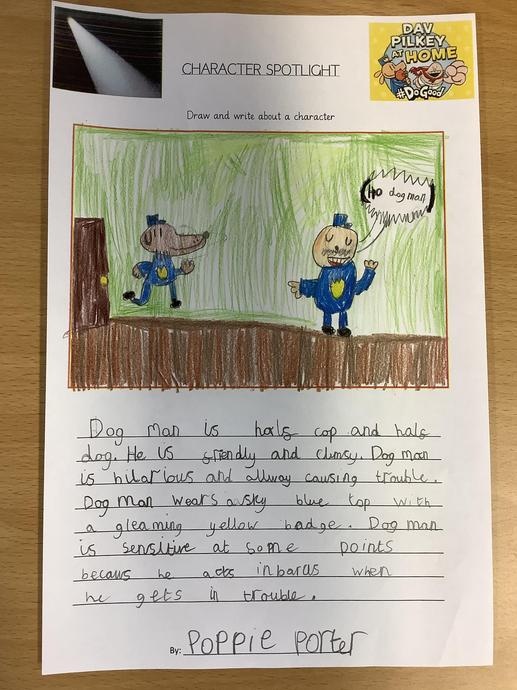 DAV
PILKEY
AT HOME
#DoGood
CHARACTER SPOTLIGHT
Draw and write about a character
HO dog man
Dog Man is hals cop and hals
dog. He is friendly and clumsy. Dog man
is hilarious and allway causing trouble.
Dog Man wears a sky blue top with
a gleaming yellow badge. Dog man
is sensitive at some points
becaus he acts inbarus when
he gets in trouble.
By: Poppie Porter